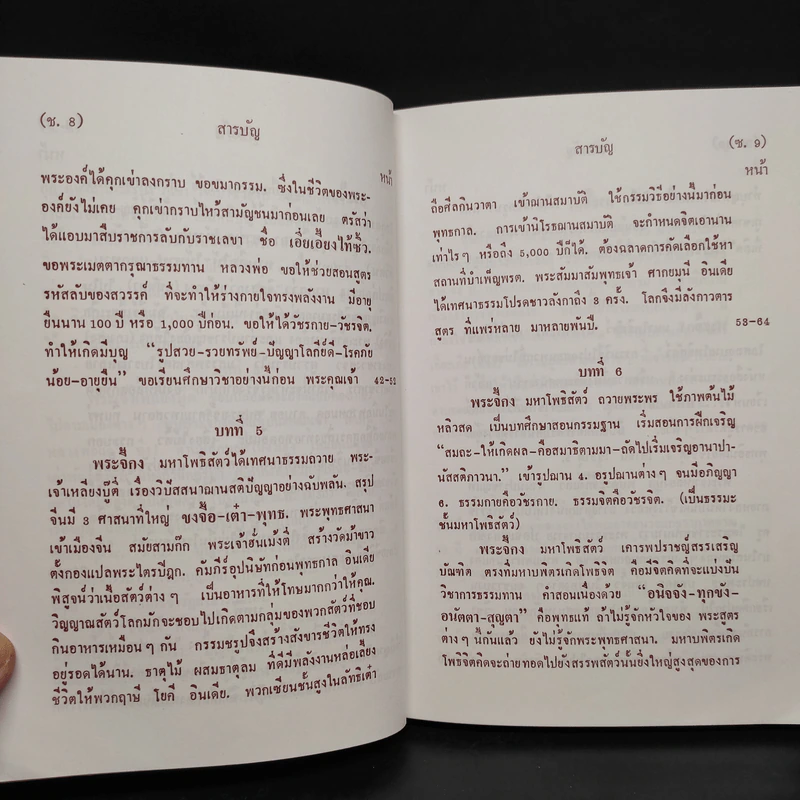 (ช. 8)
สารบัญ
หน้า
พระองค์ได้คุกเข่าลงกราบ ขอขมากรรม. ซึ่งในชีวิตของพระ-
องค์ยังไม่เคย คุกเข่ากราบไหว้สามัญชนมาก่อนเลย ตรัสว่า
ได้แอบมาสืบราชการลับกับราชเลขา ชื่อ เอี่ยเอี้ยงไท้ซิ้ว.
ขอพระเมตตากรุณาธรรมทาน หลวงพ่อ ขอให้ช่วยสอนสูตร
รหัสลับของสวรรค์ ที่จะทำให้ร่างกายใจทรงพลังงาน มีอายุ
ยืนนาน 100 ปี หรือ 1,000 ปีก่อน. ขอให้ได้วัชรกาย-วัชรจิต.
ทำให้เกิดมีบุญ "รูปสวย-รวยทรัพย์-ปัญญาโลกีย์ดี-โรคภัย
น้อย-อายุยืน" ขอเรียนศึกษาวิชาอย่างนี้ก่อน พระคุณเจ้า 42-52
บทที่ 5
พระจี้กง มหาโพธิสัตว์ได้เทศนาธรรมถวาย พระ-
เจ้าเหลียงบู๊ตี้ เรื่องวิปัสสนาฌานสติปัญญาอย่างฉับพลัน. สรุป
จีนมี 3 ศาสนาที่ใหญ่ ขงจื้อ-เต๋า-พุทธ. พระพุทธศาสนา
เข้าเมืองจีน สมัยสามก๊ก พระเจ้าฮั่นเม้งตี้ สร้างวัดม้าขาว
ตั้งกองแปลพระไตรปิฎก. คัมภีร์อุปนิษัทก่อนพุทธกาล อินเดีย
พิสูจน์ว่าเนื้อสัตว์ต่างๆ เป็นอาหารที่ให้โทษมากกว่าให้คุณ.
วิญญาณสัตว์โลกมักจะชอบไปเกิดตามกลุ่มของพวกสัตว์ที่ชอบ
กินอาหารเหมือนๆ กัน กรรมชรุปจึงสร้างสังขารชีวิตให้ทรง
อยู่รอดได้นาน. ธาตุไม้ ผสมธาตุลม ที่ดีมีพลังงานหล่อเลี้ยง
ชีวิตให้พวกฤาษี โยคี อินเดีย. พวกเซียนชั้นสูงในลัทธิเต๋า
สารบัญ
(ช. 9)
หน้า
ถือศีลกินวาตา เข้าฌานสมาบัติ ใช้กรรมวิธีอย่างนี้มาก่อน
พุทธกาล. การเข้านิโรธฌานสมาบัติ จะกำหนดจิตเอานาน
เท่าไรๆ หรือถึง 5,000 ปีก็ได้. ต้องฉลาดการคัดเลือกใช้หา
สถานที่บำเพ็ญพรต. พระสัมมาสัมพุทธเจ้า ศากยมุนี อินเดีย
ได้เทศนาธรรมโปรดชาวลังกาถึง 3 ครั้ง. โลกจึงมีลังกาวตาร
สูตร ที่แพร่หลาย มาหลายพันปี. 53-64
บทที่ 6
พระจี้กง มหาโพธิสัตว์ ถวายพระพร ใช้ภาพต้นไม้
หลิวสด เป็นบทศึกษาสอนกรรมฐาน เริ่มสอนการฝึกเจริญ
"สมถะ-ให้เกิดผล-คือสมาธิตามมา-ถัดไปเริ่มเจริญอานาปา-
นัสสติภาวนา." เข้ารูปฌาน 4. อรูปฌานต่างๆ จนมีอภิญญา
6. ธรรมกายคือวัชรกาย. ธรรมจิตคือวัชรจิต. (เป็นธรรมะ
ชั้นมหาโพธิสัตว์)
พระจี้กง มหาโพธิสัตว์ เคารพปราชญ์สรรเสริญ
บัณฑิต ตรงที่มหาบพิตรเกิดโพธิจิต คือมีจิตคิดที่จะแบ่งปัน
วิชาการธรรมทาน คำสอนเนื่องด้วย "อนิจจัง-ทุกขัง-
อนัตตา-สุญตา" คือพุทธแท้ ถ้าไม่รู้จักหัวใจของ พระสูตร
ต่างๆ นี้ถันแล้ว ยังไม่รู้จักพระพุทธศาสนา. มหาบพิตรเกิด
โพธิจิตคิดจะถ่ายทอดไปยังสรรพสัตว์นั้นยิ่งใหญ่สูงสุดของการ